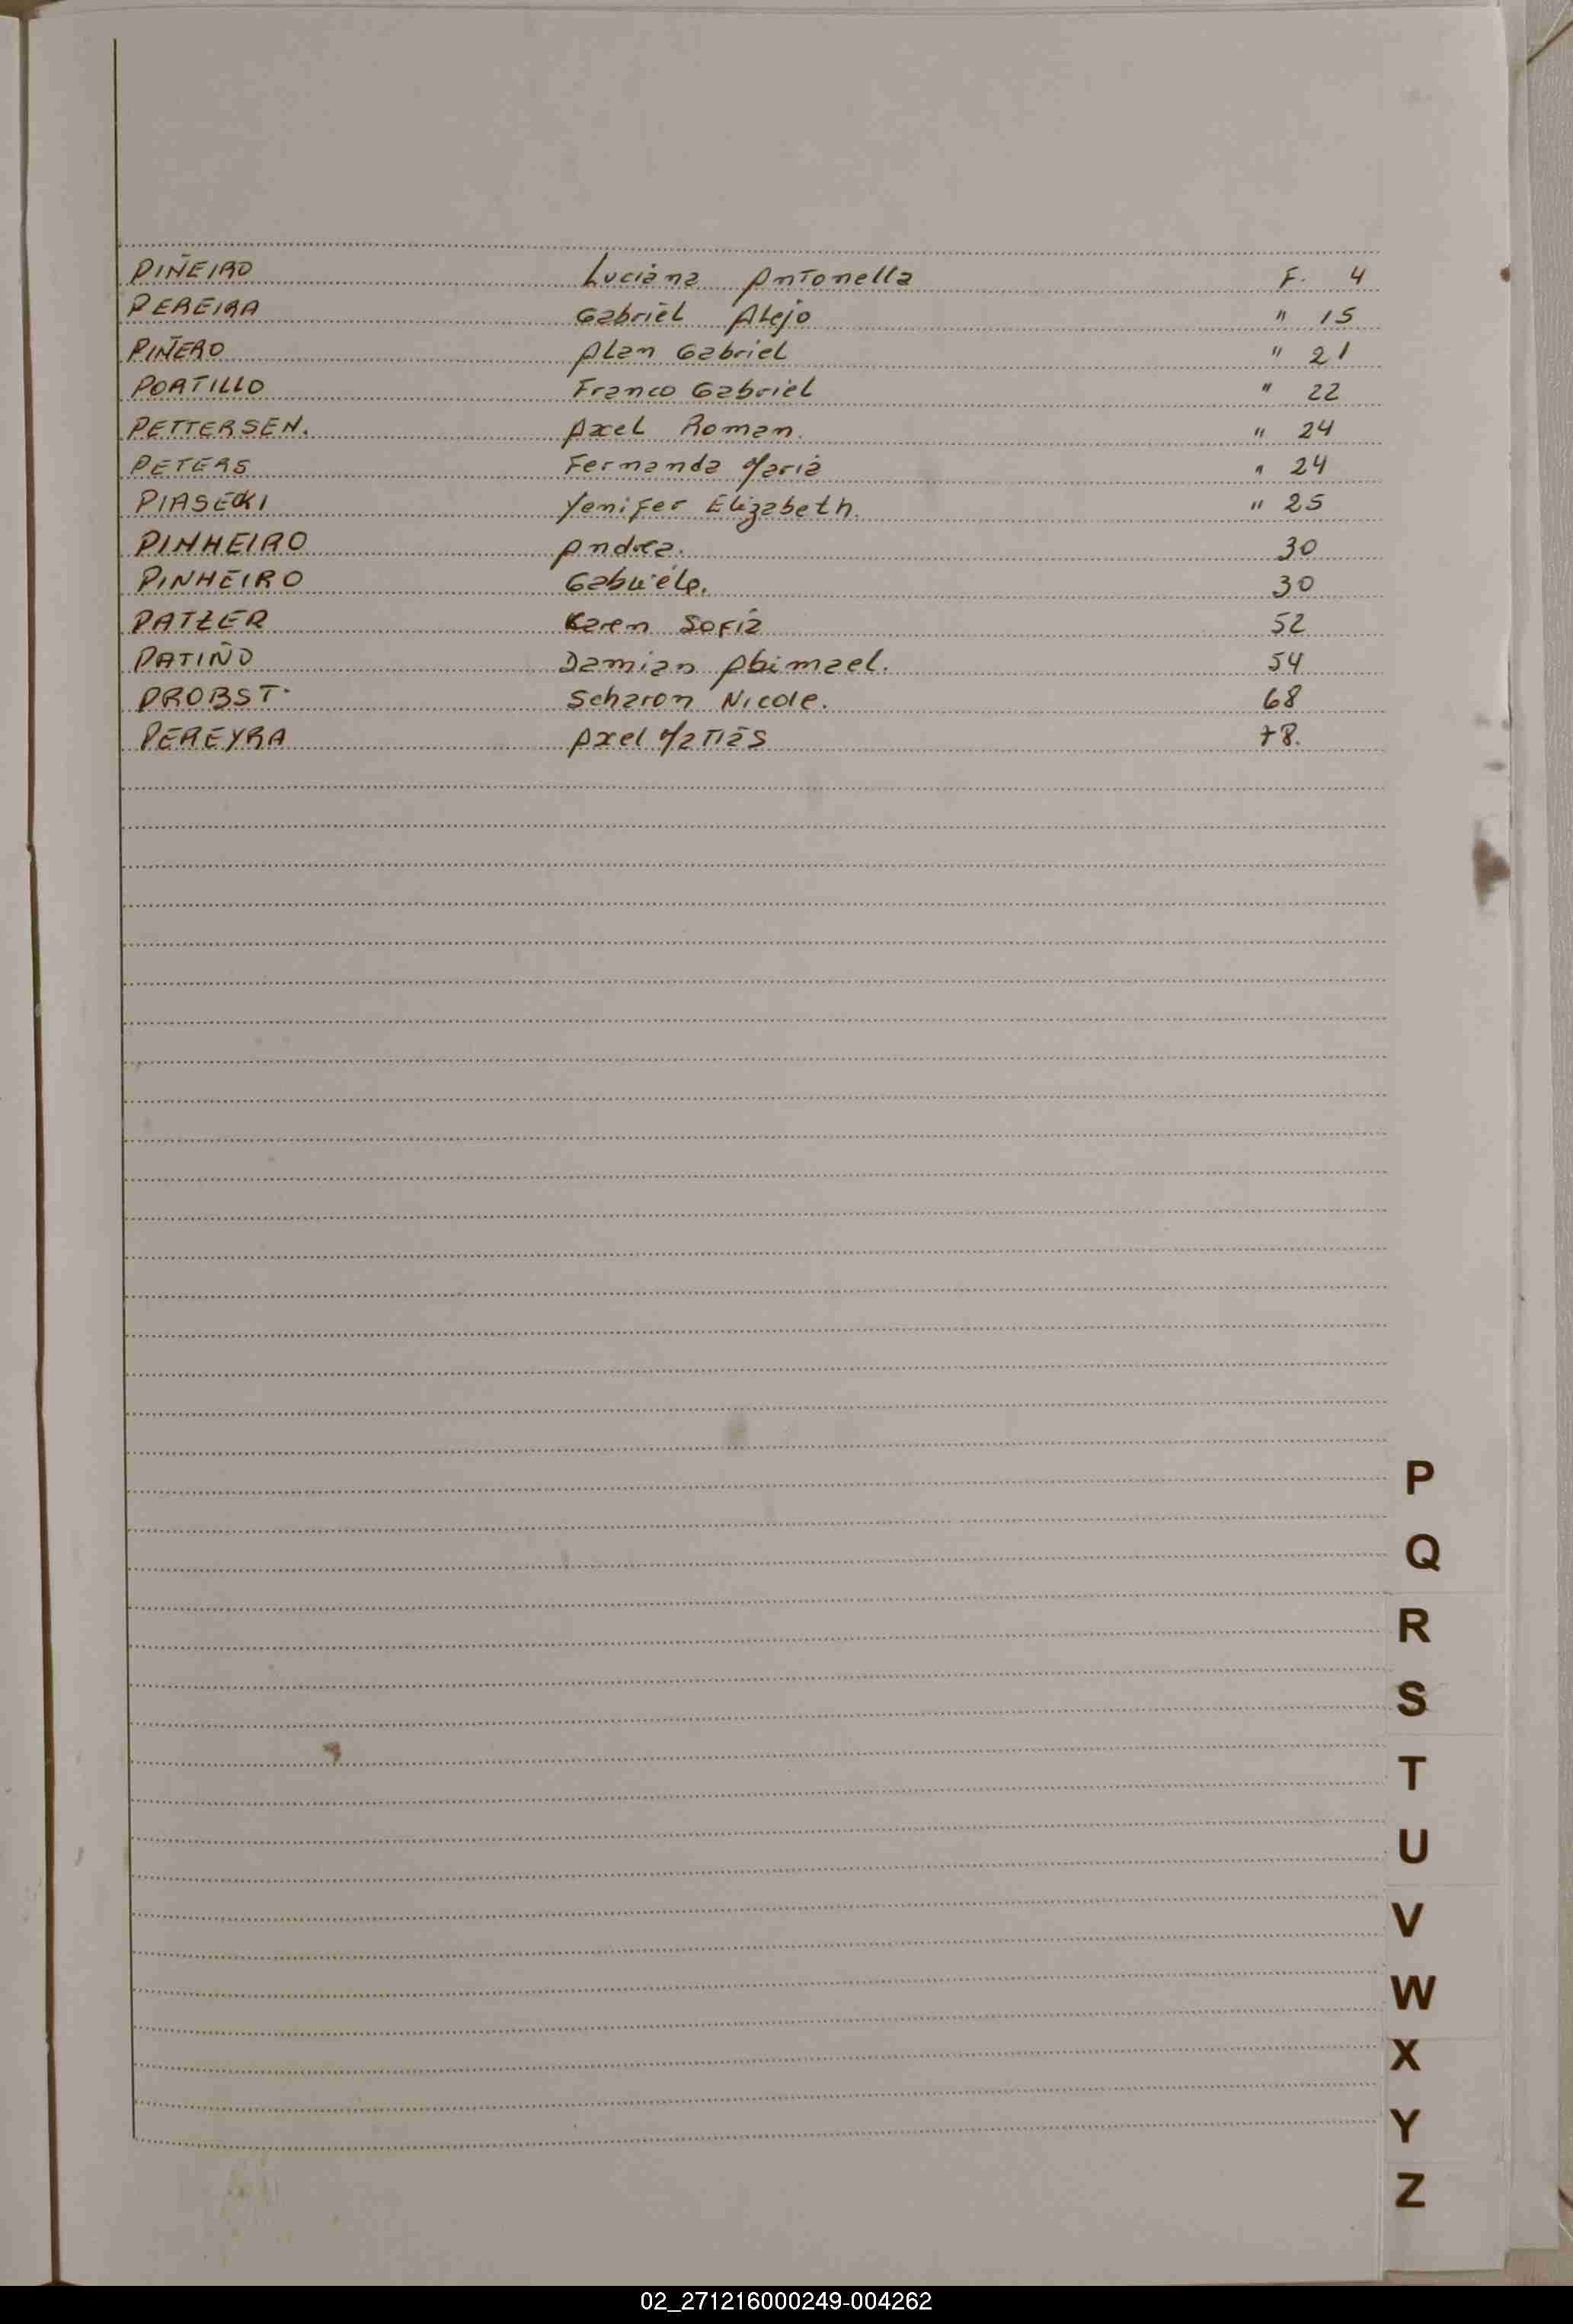 PIÑEIRO Luciana Antonella F. 4
PEREIRA Gabriel Alejo " 15
PIÑERO Alan Gabriel " 21
PORTILLO Franco Gabriel " 22
PETTERSEN. Axel Roman. " 24
PETERS Fernanda Maria " 24
PIASECKI Yenifer Elizabeth. " 25
PINHEIRO Andrea. 30
PINHEIRO Gabriela. 30
PATZER Karen Sofia 52
PATIÑO Damian Abimael. 54
PROBST. Scharon Nicole. 68
PEREYRA Axel Matias 78.
P
Q
R
S
T
U
V
W
X
Y
Z
02_271216000249-004262